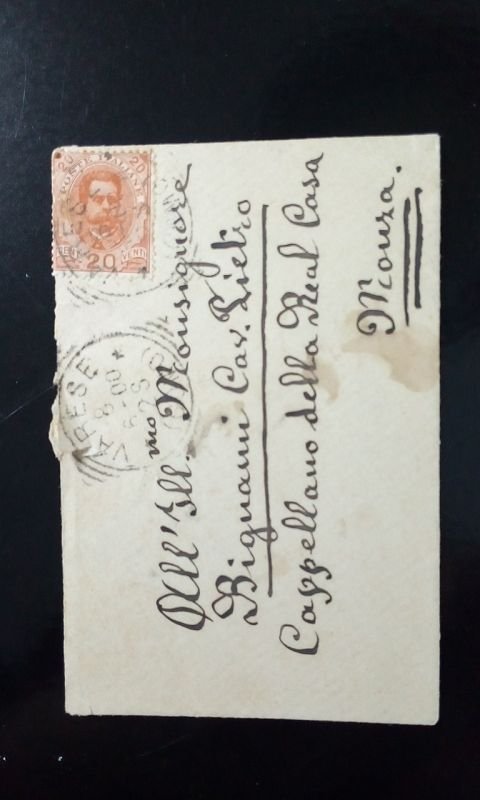 20 20
POSTE ITALIANE
CENT. 20 CENTI
VARESE
8-00
All'Ill.mo Monsignore
Bignami Cav. Pietro
Cappellano della Real Casa
Monza.